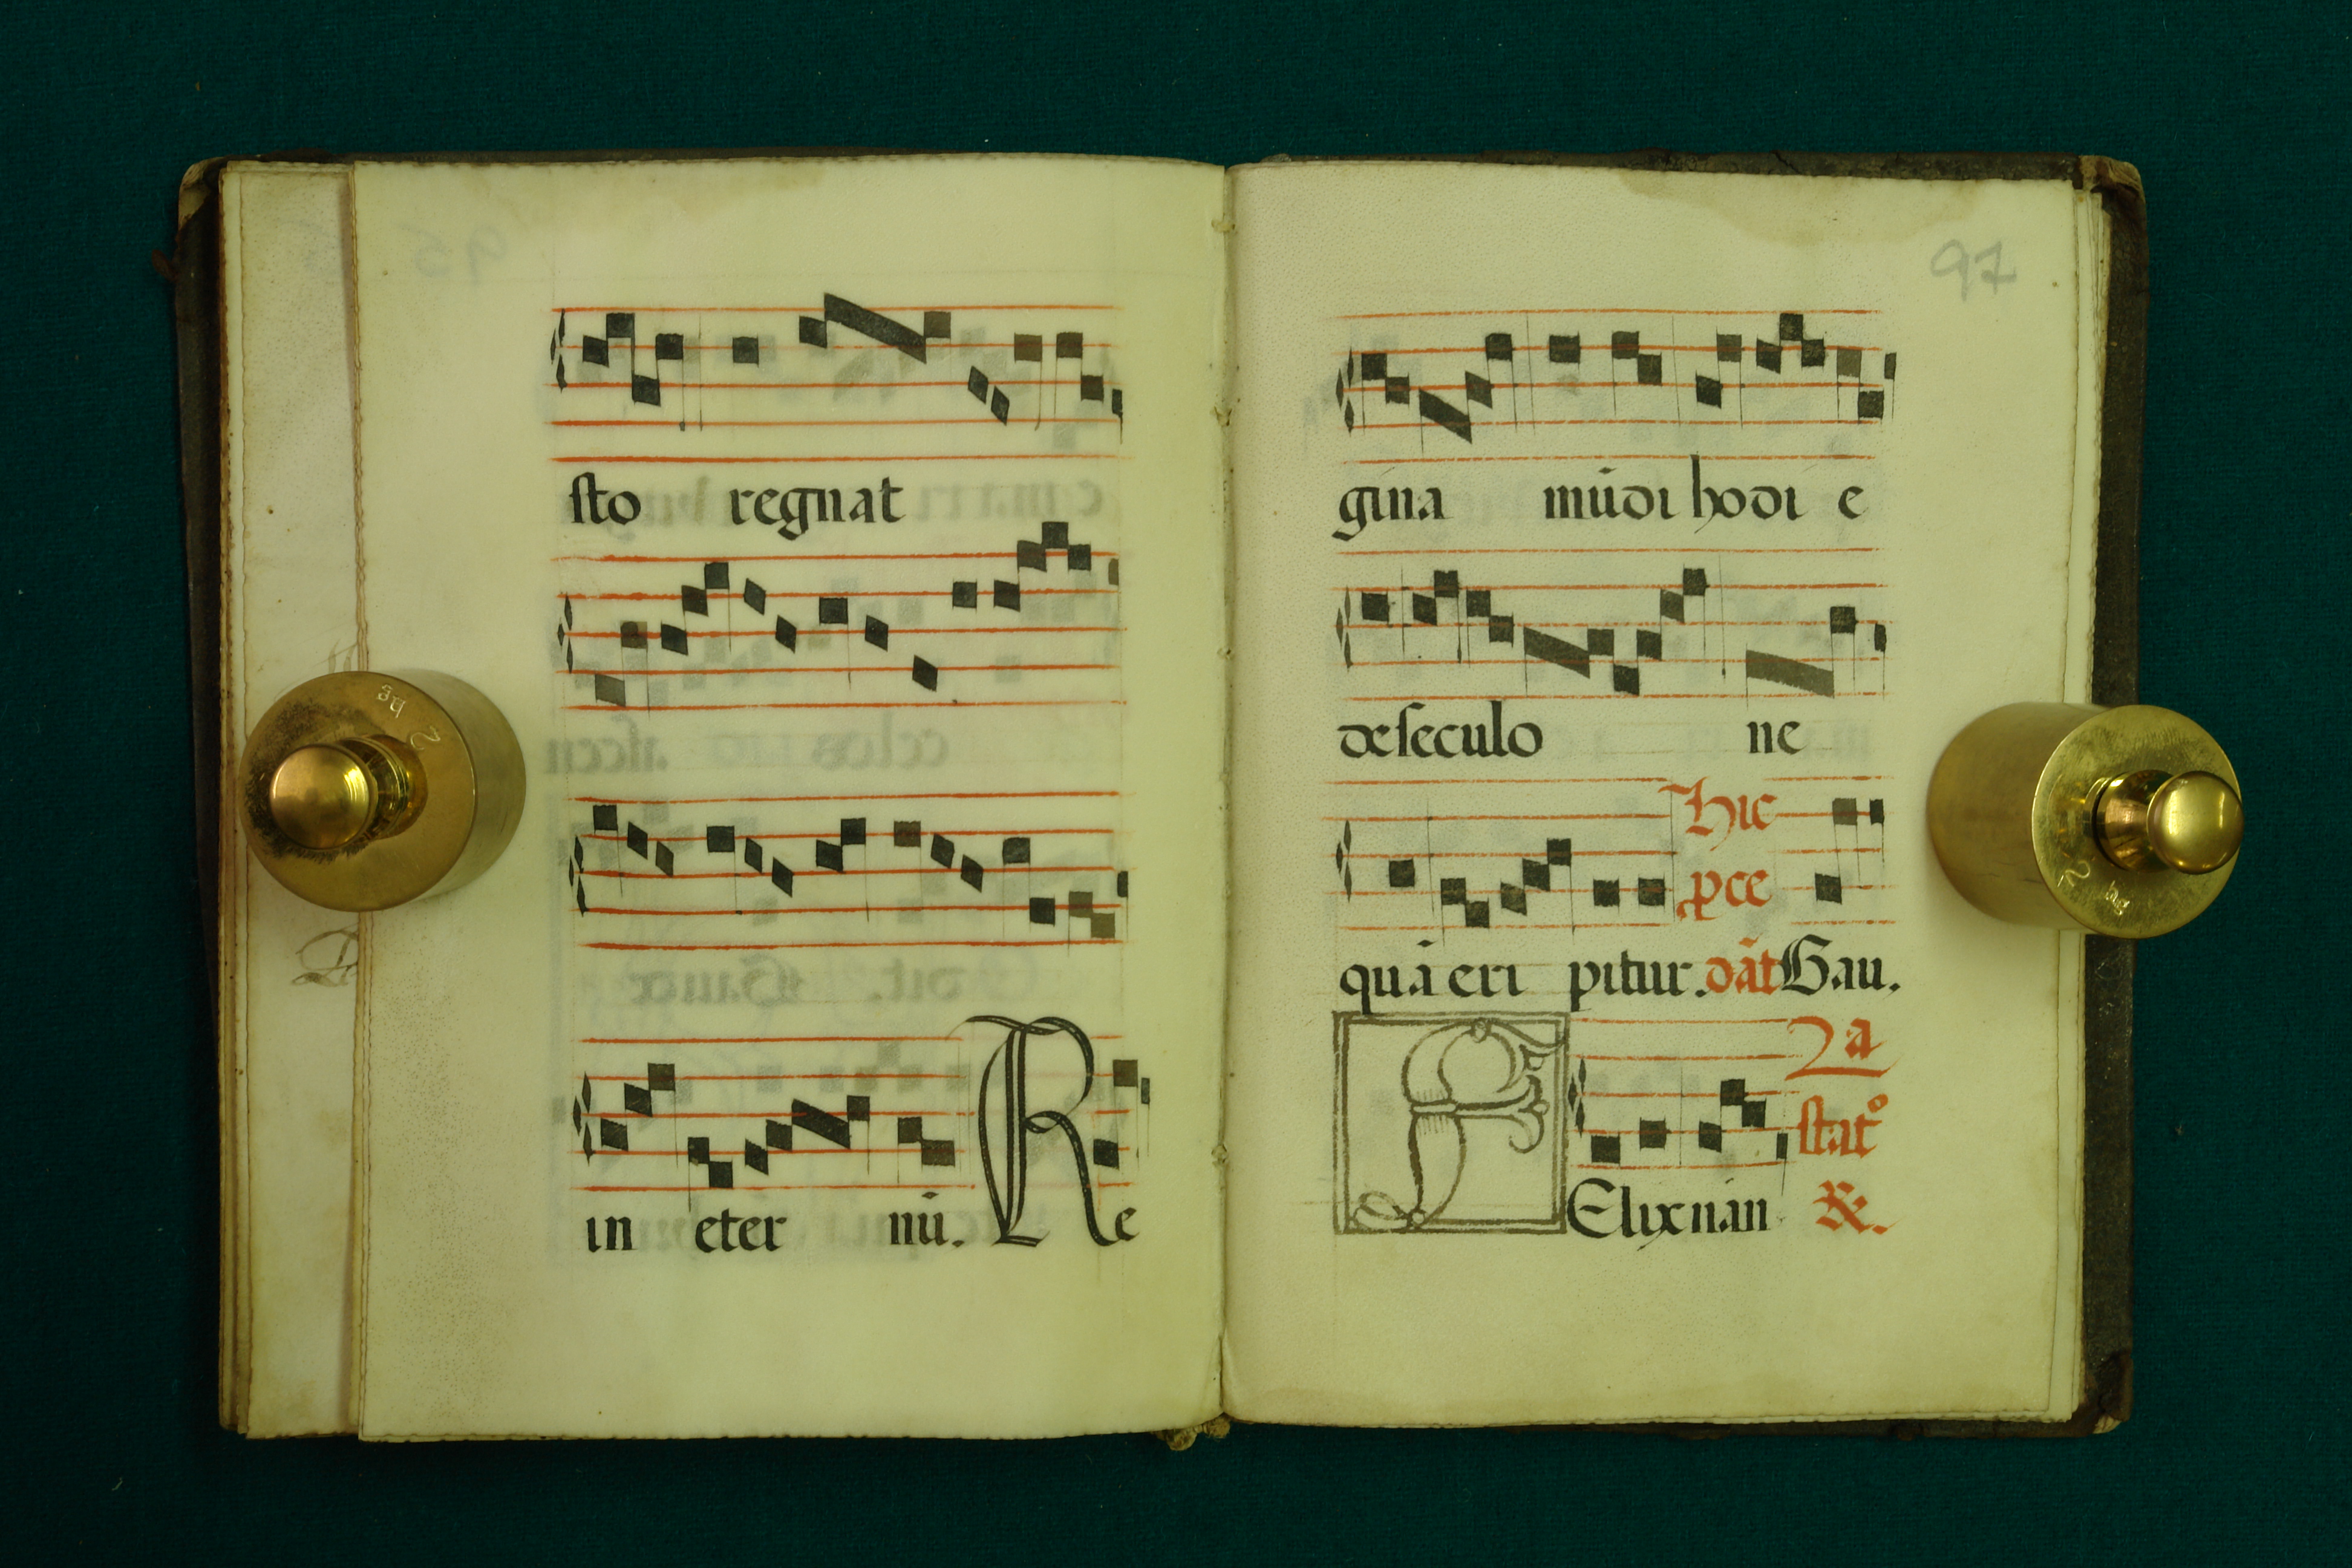 sto regnat
in eter nū. Re
97
gina mūdi hodi e
deseculo ne
Hic
pce
quā eri pitur. dāt Gau.
La
stat°
F Elix nan
R.